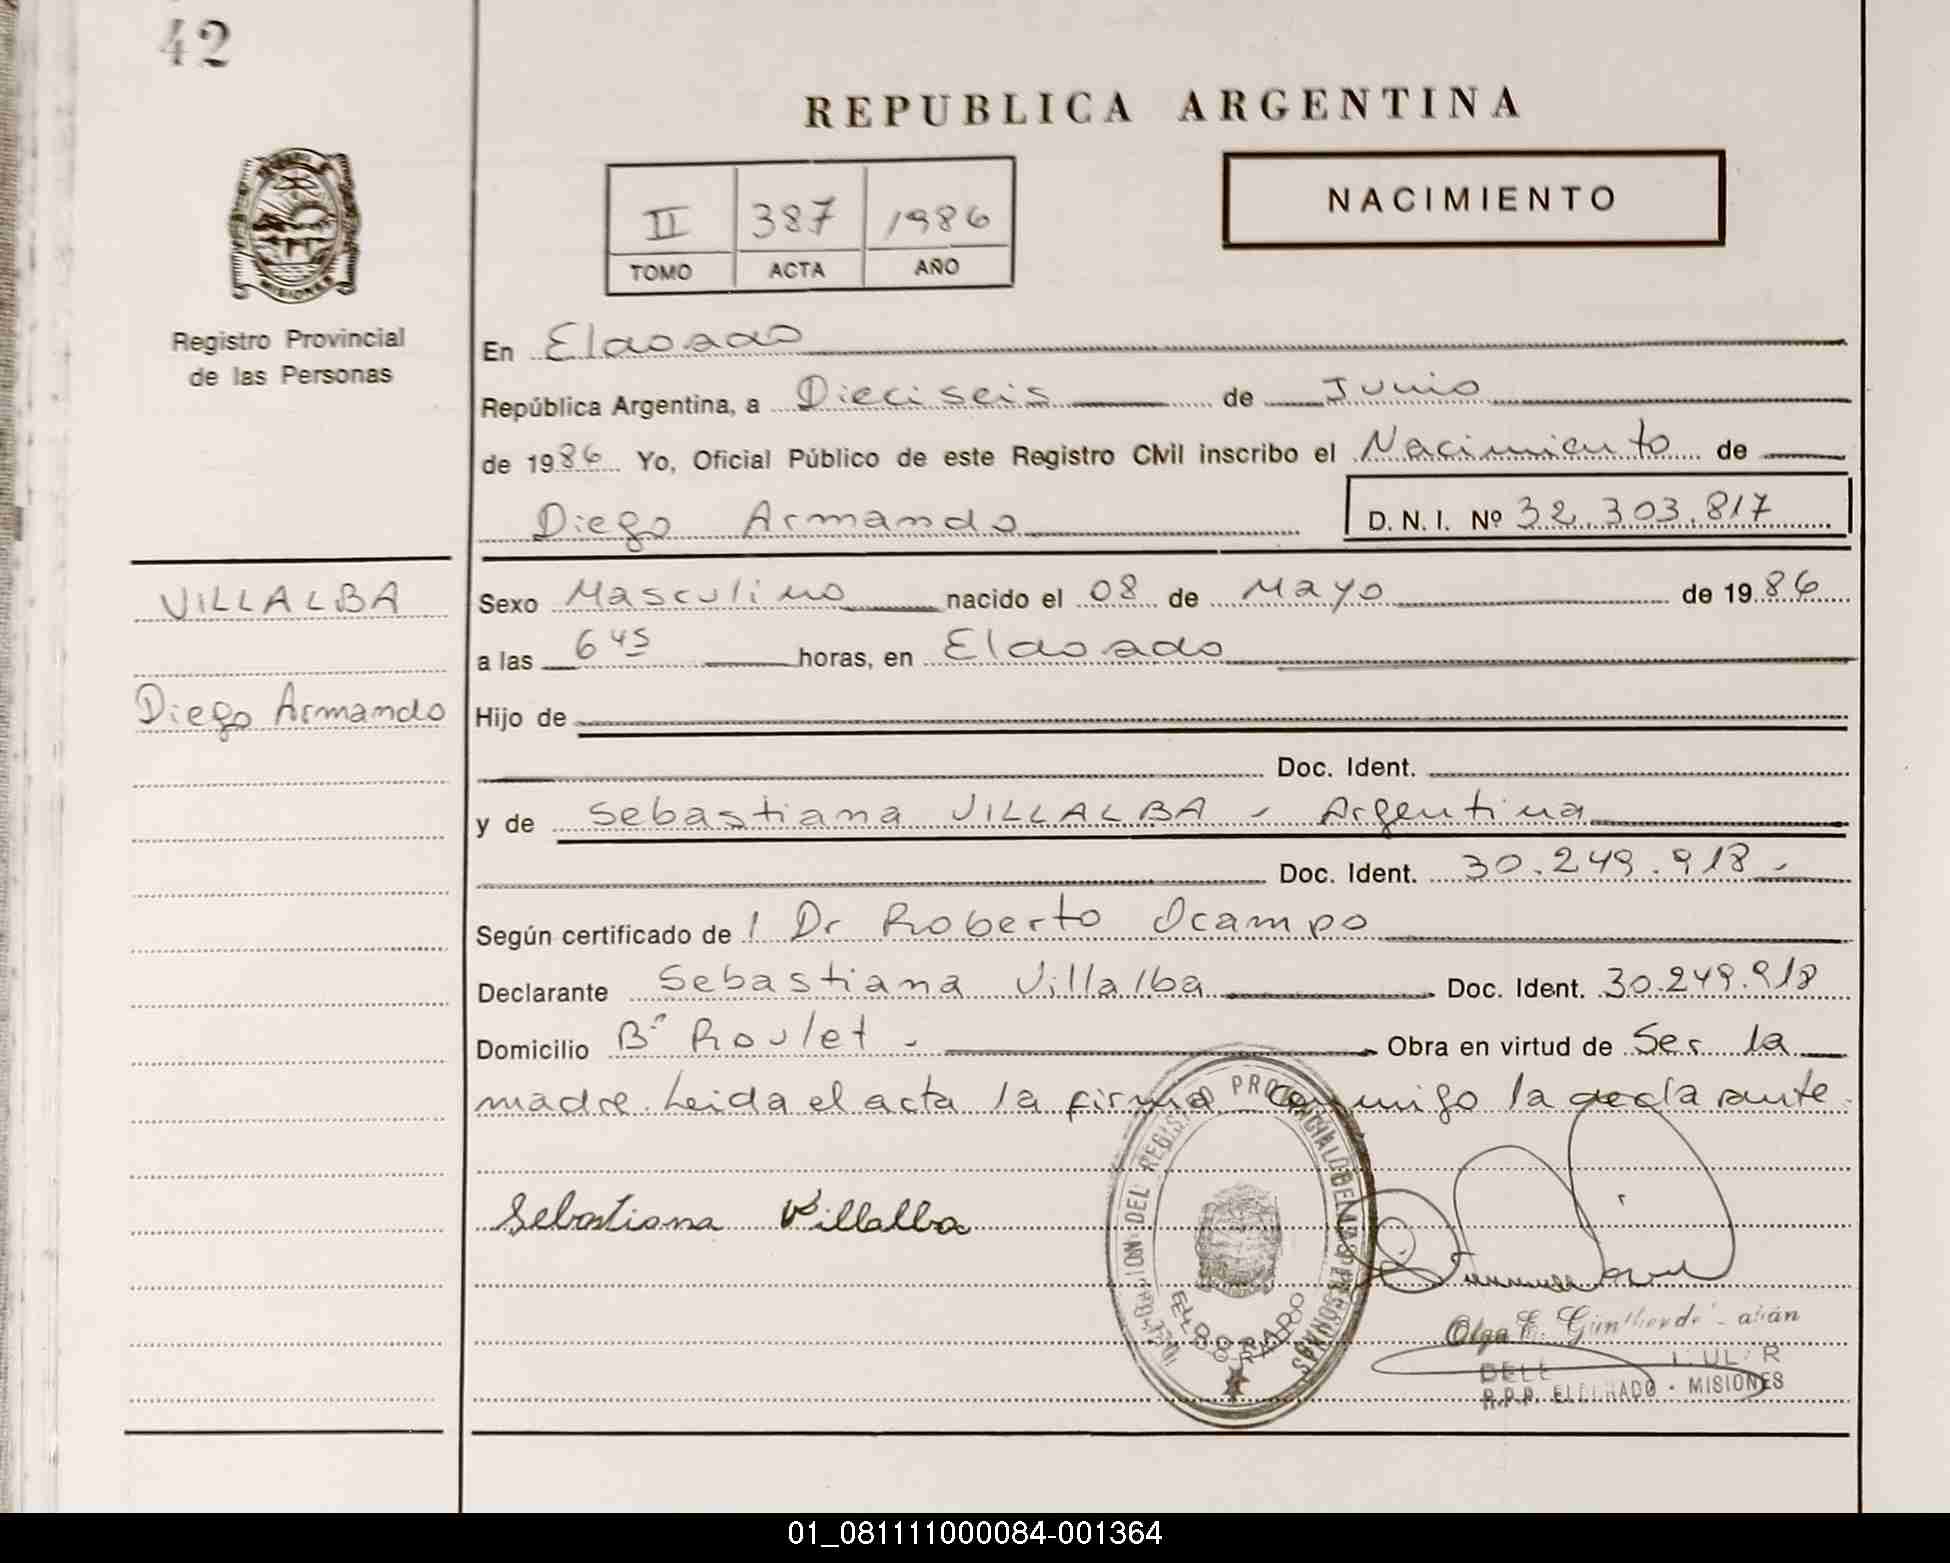 42
REPUBLICA ARGENTINA
NACIMIENTO
II 387 1986
TOMO ACTA AÑO
MISIONES
Registro Provincial
de las Personas
En Eldorado
República Argentina, a Dieciseis de Junio
de 1986 Yo, Oficial Público de este Registro Civil inscribo el Nacimiento de
Diego Armando D. N. I. Nº 32.303.817
VILLALBA
Diego Armando
Sexo Masculino nacido el 08 de Mayo de 1986
a las 6 45 horas, en Eldorado
Hijo de
Doc. Ident.
y de Sebastiana VILLALBA - Argentina
Doc. Ident. 30.249.918-
Según certificado de l Dr Roberto Ocampo
Declarante Sebastiana Villalba Doc. Ident. 30.249.918
Domicilio Bº Roulet - Obra en virtud de Ser la
madre. Leida el acta la firma conmigo la declarante.
Sebastiana Villalba
DEL REGISTRO PROVINCIAL DE LAS PERSONAS
ELDORADO
Olga E.
R.P.P. ELDORADO - MISIONES
01_081111000084-001364